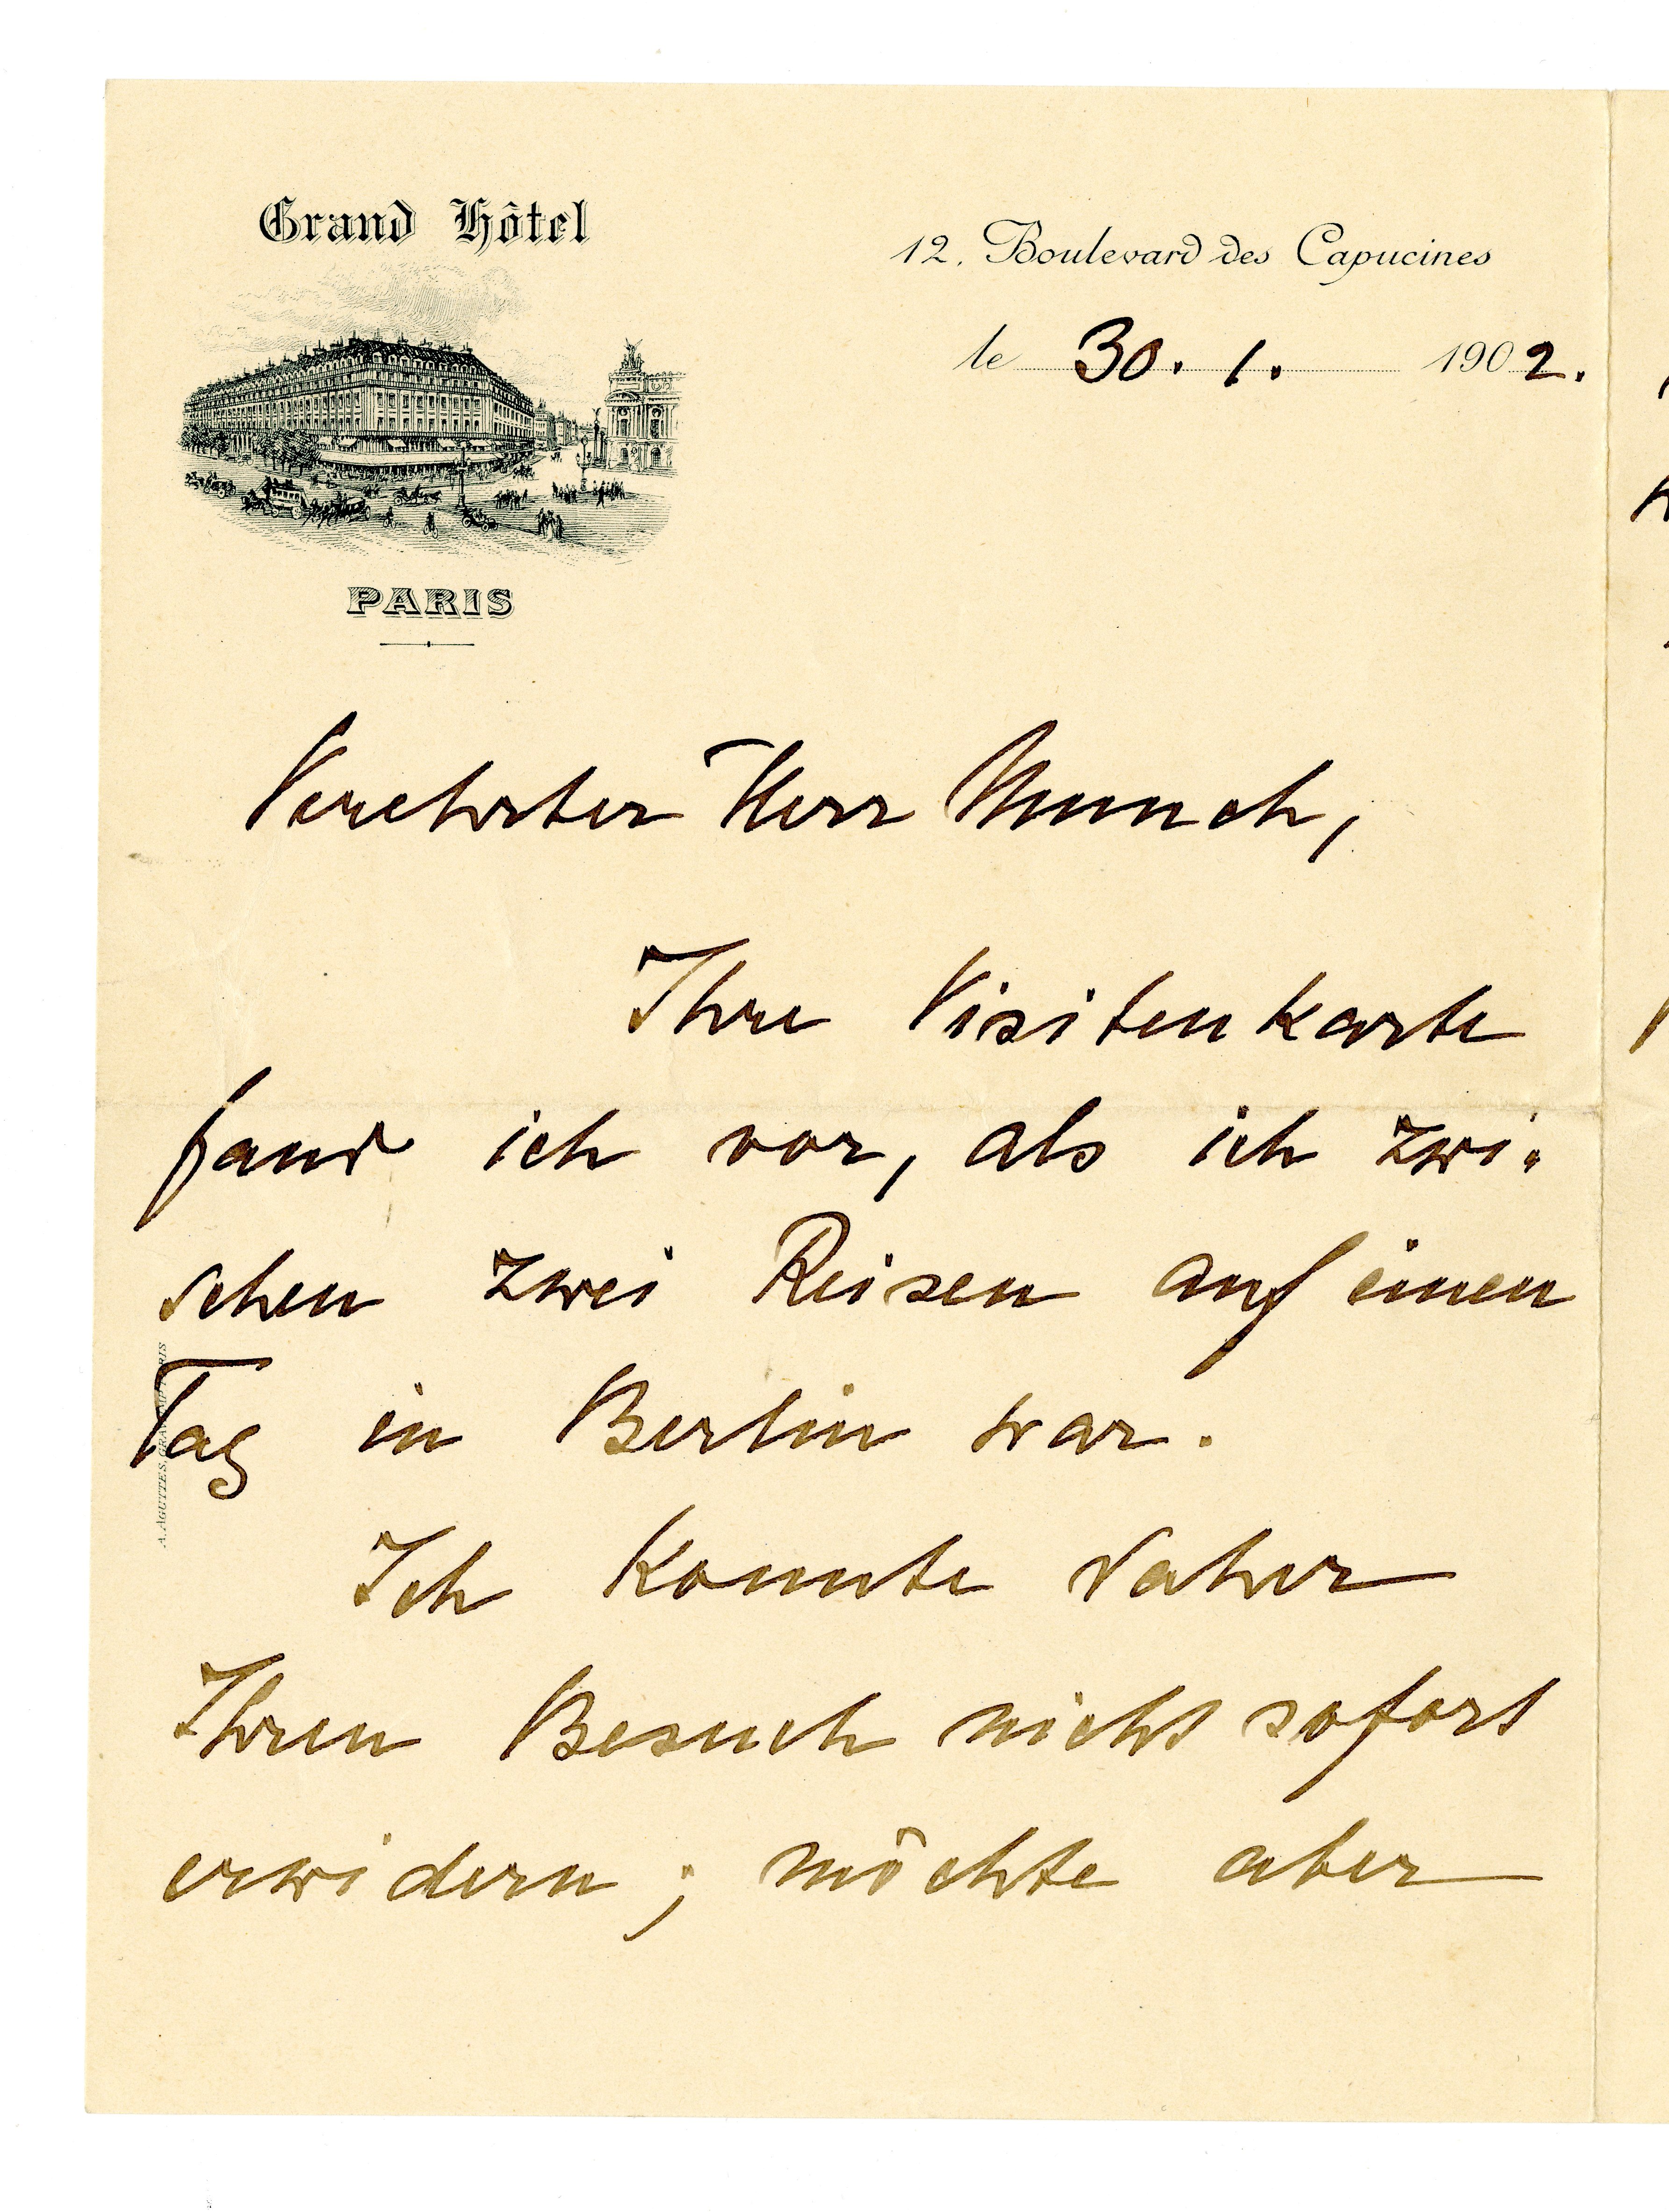 Grand Hôtel
12, Boulevard des Capucines
le 30. 1. 1902.
PARIS
Verehrter Herr Munch,
Ihre Visitenkarte
fand ich vor, als ich zwi-
schen zwei Reisen auf einen
Tag in Berlin war.
Ich konnte daher
Ihren Besuch nicht sofort
erwidern; möchte aber
A. AGUTTES PARIS